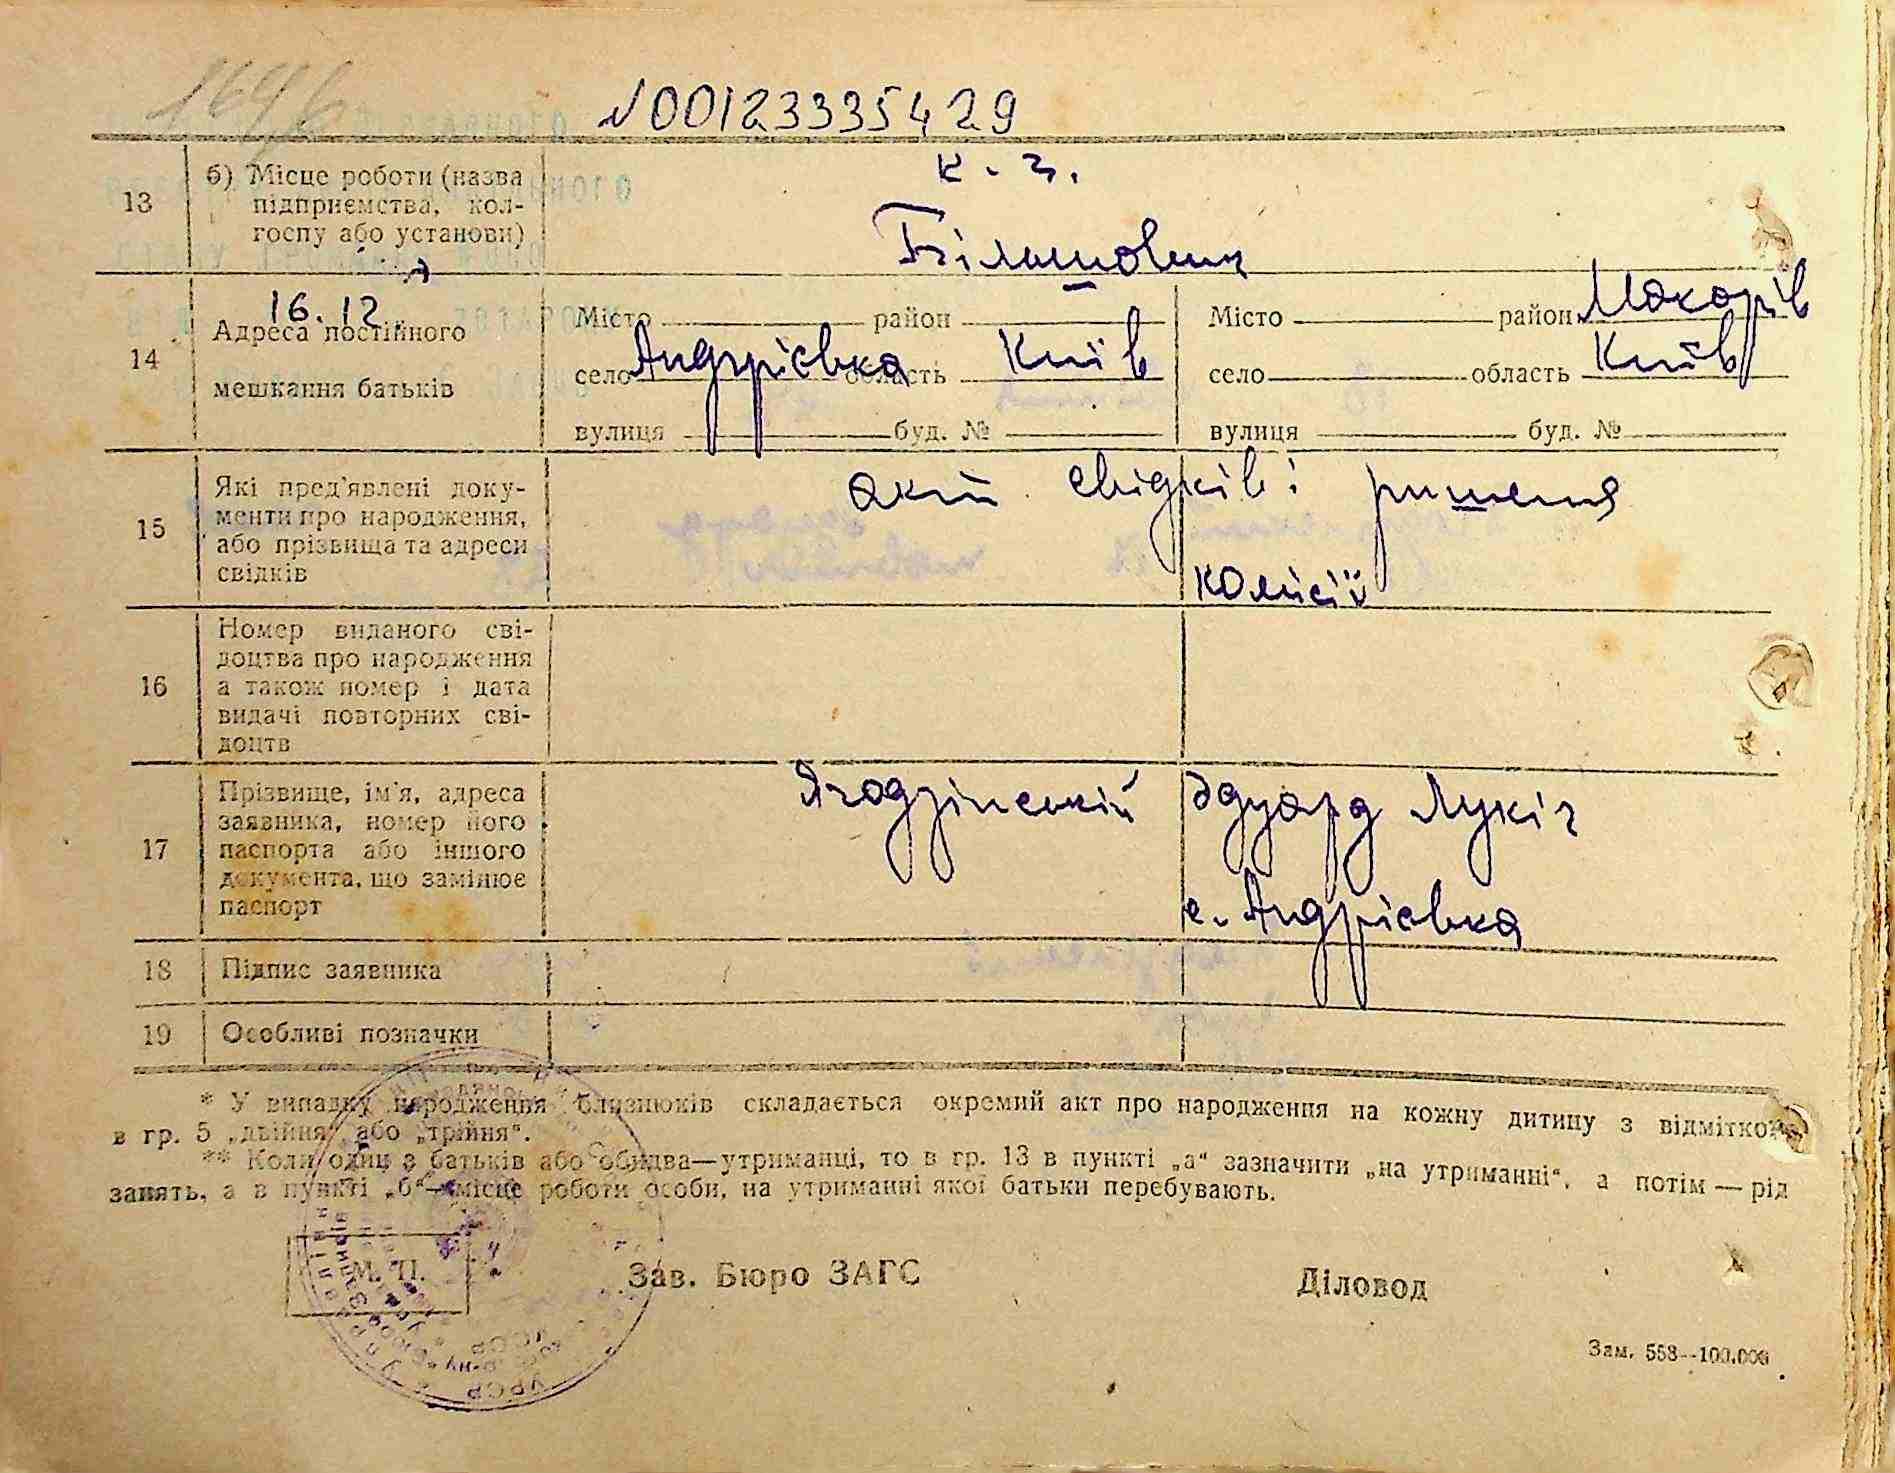 1646
N00123335429
13 б) Місце роботи (назва
підприємства, кол-
госпу або установи)
к. з.
Більшовик
16.12
14 Адреса постійного
мешкання батьків
Місто район
село Андріївка область Київ
вулиця буд. №
Місто район Макарів
село область Київ
вулиця буд. №
15 Які пред'явлені доку-
менти про народження,
або прізвища та адреси
свідків
акт свідків і ришеня
комісії
16 Номер виданого сві-
доцтва про народження
а також номер і дата
видачі повторних сві-
доцтв
17 Прізвище, ім'я, адреса
заявника, номер його
паспорта або іншого
документа, що замінює
паспорт
Ягодзінський Эдуард Лукіч
с. Андрієвка
18 Підпис заявника
19 Особливі позначки
* У випадку народження близнюків складається окремий акт про народження на кожну дитину з відміткою
в гр. 5 „двійня“ або „трійня“.
** Коли один з батьків або обидва—утриманці, то в гр. 13 в пункті „а“ зазначити „на утриманні“, а потім — рід
занять, а в пункті „б“—місце роботи особи, на утриманні якої батьки перебувають.
М. П.
Зав. Бюро ЗАГС
Діловод
Зам. 558—100.000